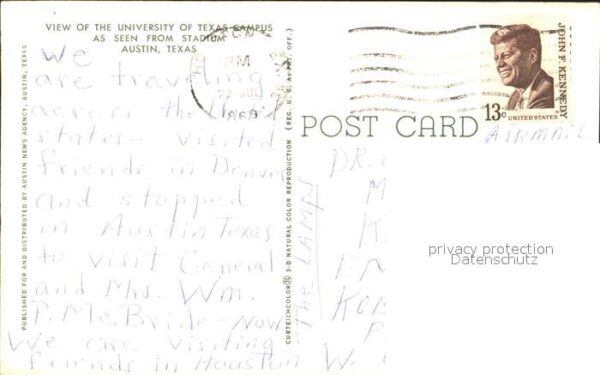 VIEW OF THE UNIVERSITY OF TEXAS CAMPUS
AS SEEN FROM STADIUM
AUSTIN, TEXAS
We
are traveling
across the United
states - visited
friends in Denver
and stopped
in Austin Texas
to visit General
and Mrs. Wm.
P. McBride - Now
we are visiting
friends in Houston
The LAMPS
PUBLISHED FOR AND DISTRIBUTED BY AUSTIN NEWS AGENCY, AUSTIN, TEXAS
CURTEICHCOLOR® 3-D NATURAL COLOR REPRODUCTION (REG. U.S.A. PAT. OFF.)
PM
22 JUL
POST CARD
JOHN F. KENNEDY
13c
UNITED STATES
AIRMAIL
DR.
M
K
EN
KOB
P
W.
privacy protection
Datenschutz